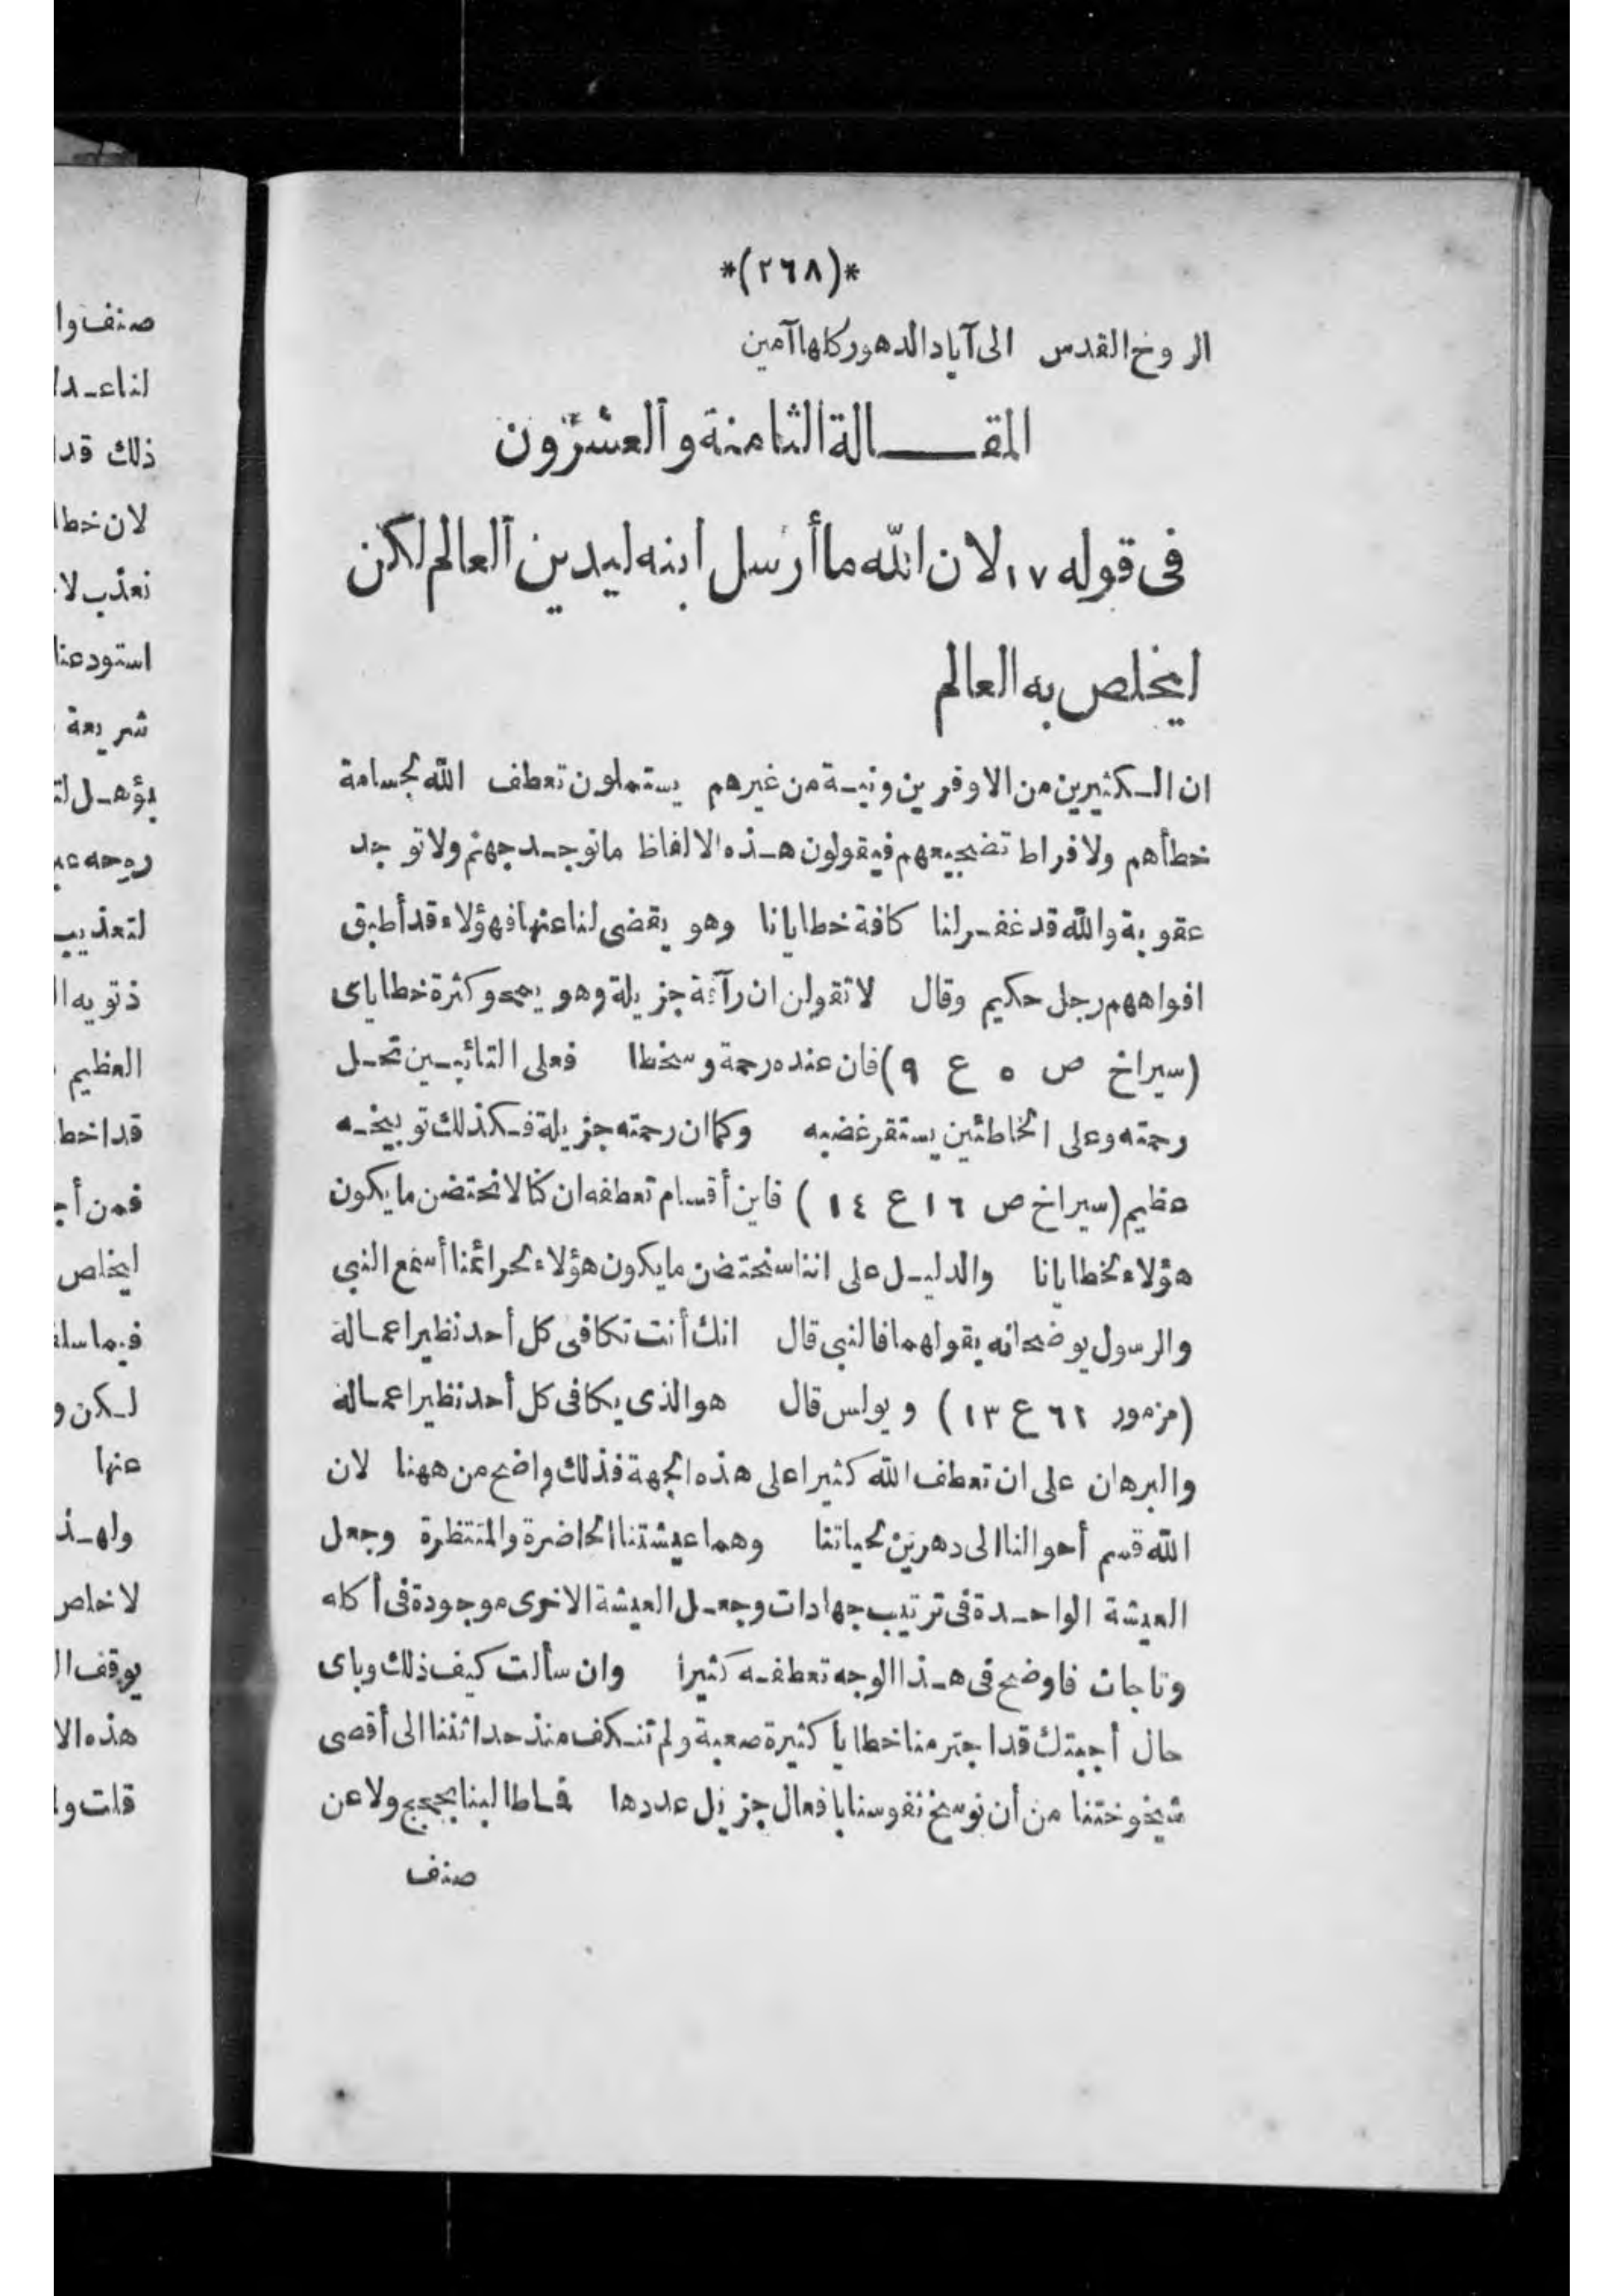 *(٢٦٨)*
الروح القدس الى آباد الدهور كلها آمين
المقـــالة الثامنة والعشرون
فى قوله ١٧ لان الله ما أرسل ابنه ليدين العالم لكن
ليخلص به العالم
ان الـكثيرين من الاوفرين ونيـة من غيرهم يستعملون تعطف الله لجسامة
خطأهم ولافراط تضجيعهم فيقولون هـذه الالفاظ ماتوجـد جهنم ولا توجد
عقوبة والله قد غفـر لنا كافة خطايانا وهو يقضى لنا عنها فهؤلاء قد أطبق
افواههم رجل حكيم وقال لا تقولن ان رآفة جزيلة وهو يمحو كثرة خطاياى
(سيراخ ص ٥ ع ٩) فان عنده رحمة وسخطا فعلى التائبـين تحـل
رحمته وعلى الخاطئين يستقر غضبه وكما ان رحمته جزيلة فـكذلك توبيخـه
عظيم (سيراخ ص ١٦ ع ١٤) فاين أقسام تعطفه ان كنا لا نحتضن ما يكون
هؤلاء لخطايانا والدليـل على اننا سنحتضن ما يكون هؤلاء لجرائمنا أسمع النبى
والرسول يوضحانه بقولهما فالنبى قال انك أنت تكافى كل أحد نظير اعمـاله
(مزمور ٦٢ ع ١٣) وبولس قال هو الذى يكافى كل أحد نظير اعمـاله
والبرهان على ان تعطف الله كثيرا على هذه الجهة فذلك واضح من ههنا لان
الله قسم أحوالنا الى دهرين لحياتنا وهما عيشتنا الحاضرة والمنتظرة وجعل
العيشة الواحـدة فى ترتيب جهادات وجعـل العيشة الاخرى موجودة فى أكله
وتاجات فاوضح فى هـذا الوجه تعطفـه كثيرا وان سألت كيف ذلك وباى
حال أجبتك قد اجترمنا خطايا كثيرة صعبة ولم تنـكف منذ حداثتنا الى أقصى
شيخوختنا من أن نوسخ نفوسنا بافعال جزيل عددها فـاطالبنا بحجج ولا عن
صنف
صنف وا
ذلك قدا
لان خطا
نعذب لا
استودعنا
شريعة
روحه
لتعذيب
العظيم
قد اخطا
فمن
ليخلص
فيما سلف
لـكن و
عنها
ولهـذ
لا خلص
يوقف ا
هذه الا
قلت و